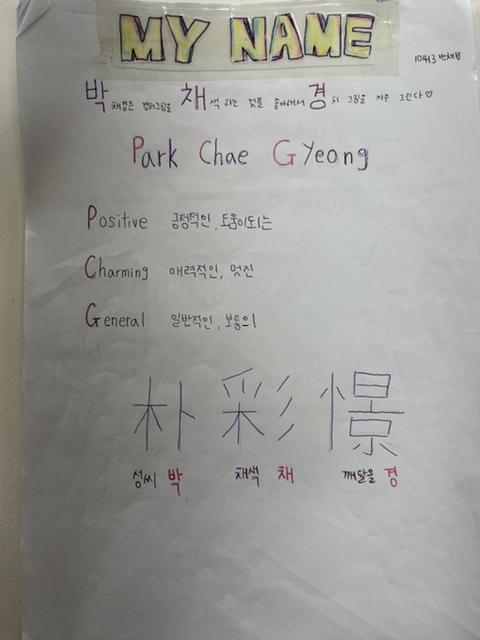 MY NAME
10413 박채경
박채경은 컬러그림을 채색 하는 것을 좋아해서 경치 그림을 자주 그린다♡
Park Chae Gyeong
Positive 긍정적인, 도움이되는
Charming 매력적인, 멋진
General 일반적인, 보통의
朴 彩 憬
성씨 박 채색 채 깨달을 경